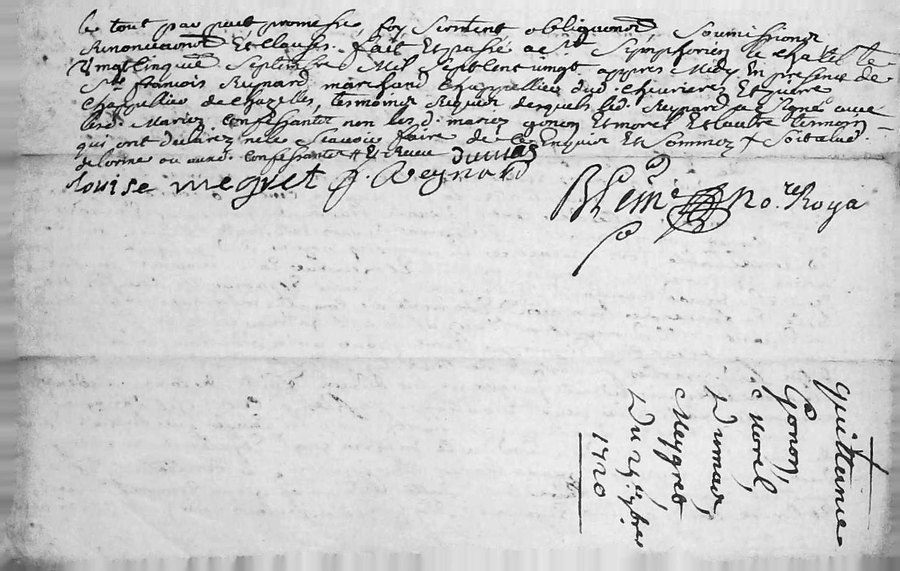 le tout par promesse, foy, serment, obligaōns Soumissions
Renonciaōns Et Clauses. fait Et passé a St Symphorien le chatel le
Vingt Cinquieme Septembre Mil Sept Cent vingt appres Midy En presence de
Sr francois Reynard marchand Chappellier dud. Et pierre
Chapellier de Chazelles, tesmoins Requis desquels led. Reynard a signé avec
lesd. Mariez non les d. mariez gonon Et morel Et lautre tesmoin
qui ont declarez ne le Scauoir faire de ce Enquis Et Sommez
delorme ou aud. Confessantes
Louise megret f. Reynard dumas
No.re Royal
quittance
Gonon,
morel,
Dumas,
Meygret
Du 25.e 7bre
1720